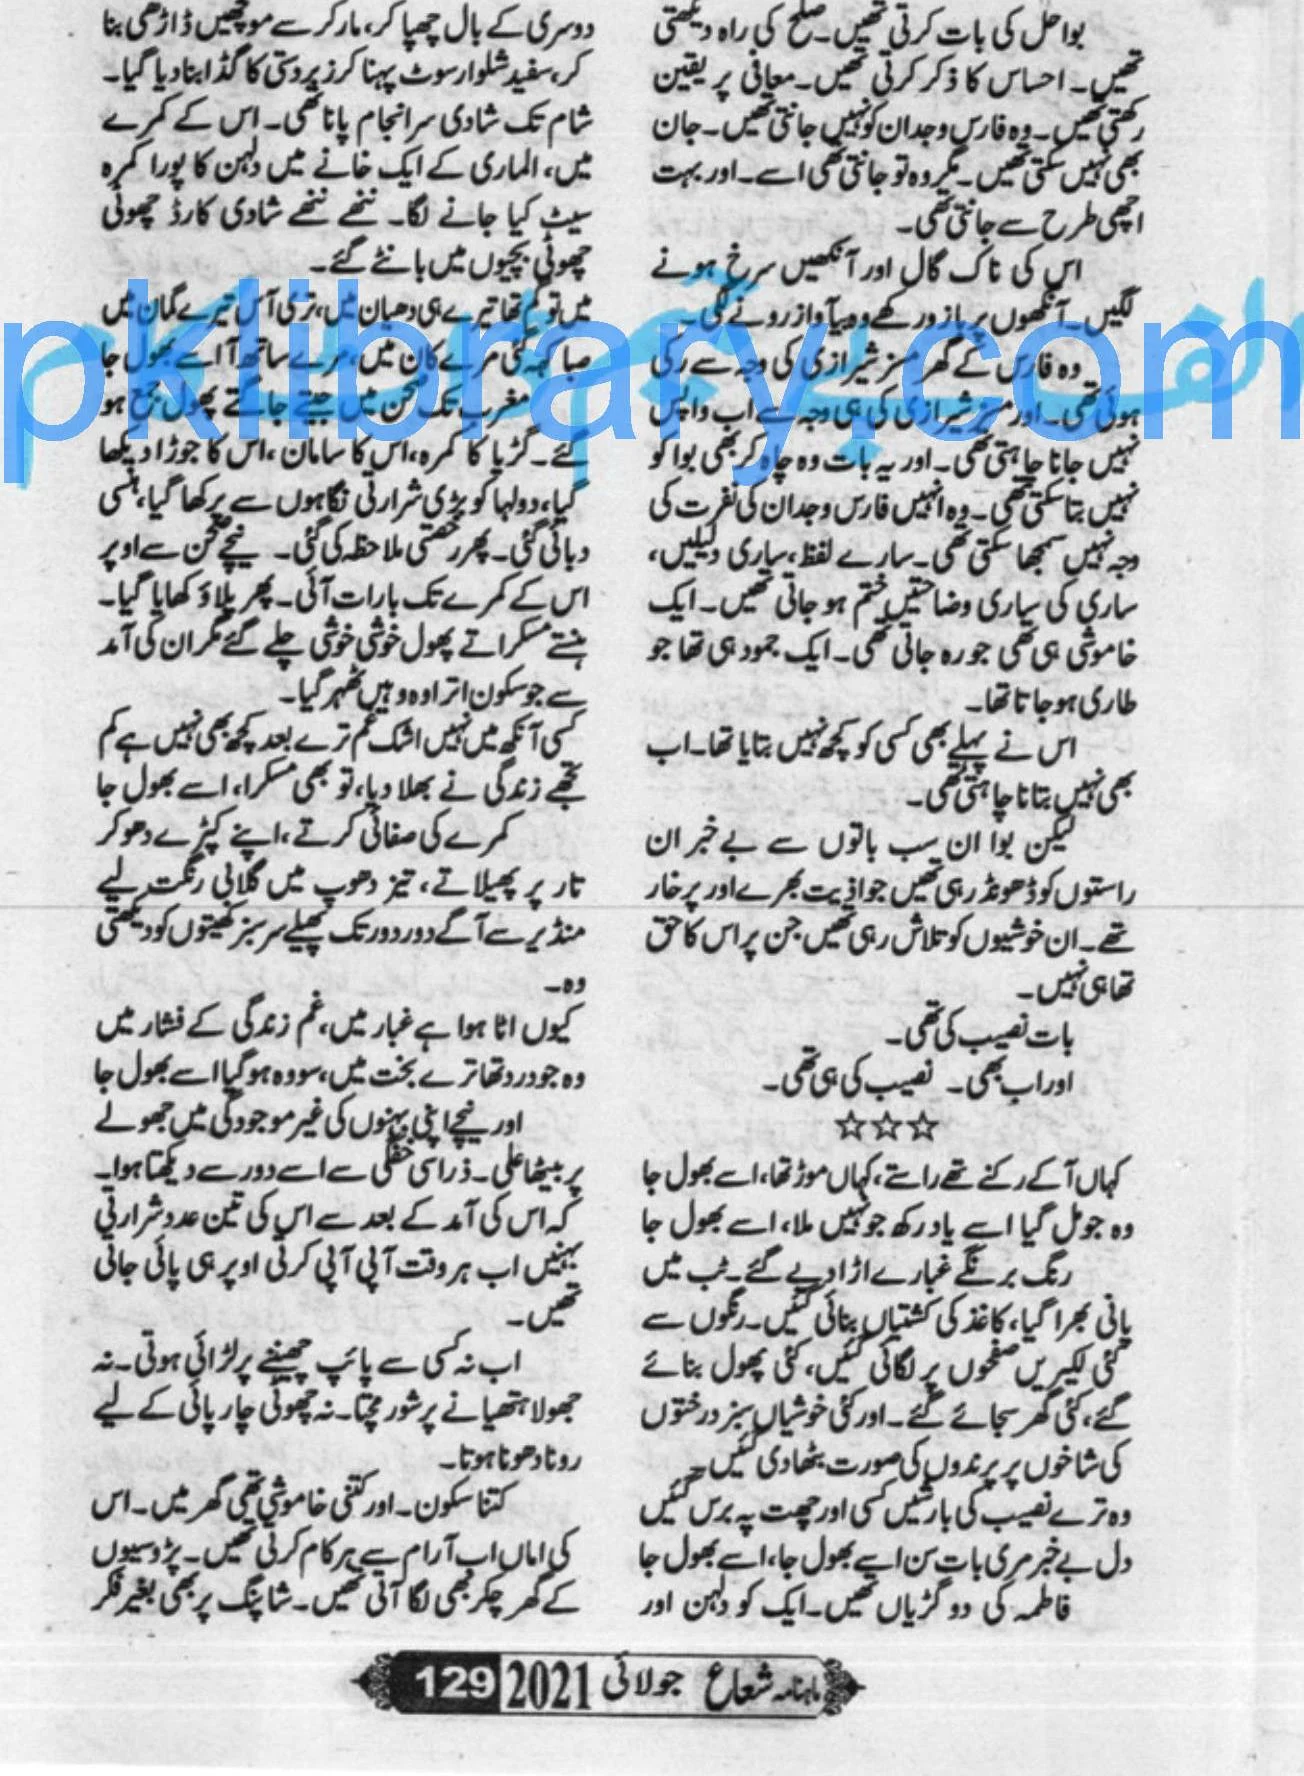 بوا حل کی بات کرتی تھیں۔ صلح کی راہ دیکھتی
تھیں۔ احساس کا ذکر کرتی تھیں۔ معافی پر یقین
رکھتی تھیں۔ وہ فارس وجدان کو نہیں جانتی تھیں۔ جان
بھی نہیں سکتی تھیں۔ مگر وہ تو جانتی تھی اسے۔ اور بہت
اچھی طرح سے جانتی تھی۔
اس کی ناک گال اور آنکھیں سرخ ہونے
لگیں۔ آنکھوں پر بازو رکھے وہ بے آواز رونے لگی۔
وہ فارس کے گھر مسز شیرازی کی وجہ سے رکی
ہوئی تھی۔ اور مسز شیرازی کی ہی وجہ سے اب واپس
نہیں جانا چاہتی تھی۔ اور یہ بات وہ چاہ کر بھی بوا کو
نہیں بتا سکتی تھی۔ وہ انہیں فارس وجدان کی نفرت کی
وجہ نہیں سمجھا سکتی تھی۔ سارے لفظ، ساری دلیلیں،
ساری کی ساری وضاحتیں ختم ہو جاتی تھیں۔ ایک
خاموشی ہی تھی جو رہ جاتی تھی۔ ایک جمود ہی تھا جو
طاری ہو جاتا تھا۔
اس نے پہلے بھی کسی کو کچھ نہیں بتایا تھا۔ اب
بھی نہیں بتانا چاہتی تھی۔
لیکن بوا ان سب باتوں سے بے خبر ان
راستوں کو ڈھونڈ رہی تھیں جو اذیت بھرے اور پر خار
تھے۔ ان خوشیوں کو تلاش رہی تھیں جن پر اس کا حق
تھا ہی نہیں۔
بات نصیب کی تھی۔
اور اب بھی۔ نصیب کی ہی تھی۔
☆☆☆
کہاں آ کے رکنے تھے راستے، کہاں موڑ تھا، اسے بھول جا
وہ جو مل گیا اسے یاد رکھ جو نہیں ملا، اسے بھول جا
رنگ برنگے غبارے اڑا دیے گئے۔ ٹب میں
پانی بھرا گیا، کاغذ کی کشتیاں بنائی گئیں۔ رنگوں سے
کئی لکیریں صفحوں پر لگائی گئیں، کئی پھول بنائے
گئے، کئی گھر سجائے گئے۔ اور کئی خوشیاں سبز درختوں
کی شاخوں پر پرندوں کی صورت بٹھا دی گئیں۔
وہ ترے نصیب کی بارشیں کسی اور چھت پہ برس گئیں
دل بے خبر مری بات سن اسے بھول جا، اسے بھول جا
فاطمہ کی دو گڑیاں تھیں۔ ایک کو دلہن اور
دوسری کے بال چھپا کر، مارکر سے مونچھیں ڈاڑھی بنا
کر، سفید شلوار سوٹ پہنا کر زبردستی کا گڈا بنا دیا گیا۔
شام تک شادی سر انجام پانا تھی۔ اس کے کمرے
میں، الماری کے ایک خانے میں دلہن کا پورا کمرہ
سیٹ کیا جانے لگا۔ ننھے ننھے شادی کارڈ چھوٹی
چھوٹی بچیوں میں بانٹے گئے۔
میں تو گم تھا تیرے ہی دھیان میں، تری آس تیرے گمان میں
صبا کہہ گئی مرے کان میں، مرے ساتھ آ اسے بھول جا
مغرب تک صحن میں جیتے جاگتے پھول جمع ہو
گئے۔ گڑیا کا کمرہ، اس کا سامان، اس کا جوڑا دیکھا
گیا، دولہا کو بڑی شرارتی نگاہوں سے پرکھا گیا، ہنسی
دبائی گئی۔ پھر رخصتی ملاحظہ کی گئی۔ نیچے صحن سے اوپر
اس کے کمرے تک بارات آئی۔ پھر پلاؤ کھایا گیا۔
ہنستے مسکراتے پھول خوشی خوشی چلے گئے مگر ان کی آمد
سے جو سکون اترا وہ وہیں ٹھہر گیا۔
کسی آنکھ میں نہیں اشک غم ترے بعد کچھ بھی نہیں ہے کم
تجھے زندگی نے بھلا دیا، تو بھی مسکرا، اسے بھول جا
کمرے کی صفائی کرتے، اپنے کپڑے دھو کر
تار پر پھیلاتے، تیز دھوپ میں گلابی رنگت لیے
منڈیر سے آگے دور دور تک پھیلے سرسبز کھیتوں کو دیکھتی
وہ۔
کیوں اٹا ہوا ہے غبار میں، غم زندگی کے فشار میں
وہ جو درد تھا ترے بخت میں، سو وہ ہو گیا اسے بھول جا
اور نیچے اپنی بہنوں کی غیر موجودگی میں جھولے
پر بیٹھا علی۔ ذرا سی خفگی سے اسے دور سے دیکھتا ہوا۔
کہ اس کی آمد کے بعد سے اس کی تین عدد شرارتی
بہنیں اب ہر وقت آپی آپی کرتی اوپر ہی پائی جاتی
تھیں۔
اب نہ کسی سے پائپ چھیننے پر لڑائی ہوتی۔ نہ
جھولا ہتھیانے پر شور مچتا۔ نہ چھوٹی چارپائی کے لیے
رونا دھونا ہوتا۔
کتنا سکون۔ اور کتنی خاموشی تھی گھر میں۔ اس
کی اماں اب آرام سے ہر کام کرتی تھیں۔ پڑوسیوں
کے گھر چکر بھی لگا آتی تھیں۔ شاپنگ پر بھی بغیر فکر
pklibrary.com
ماہنامہ شعاع جولائی 2021 129